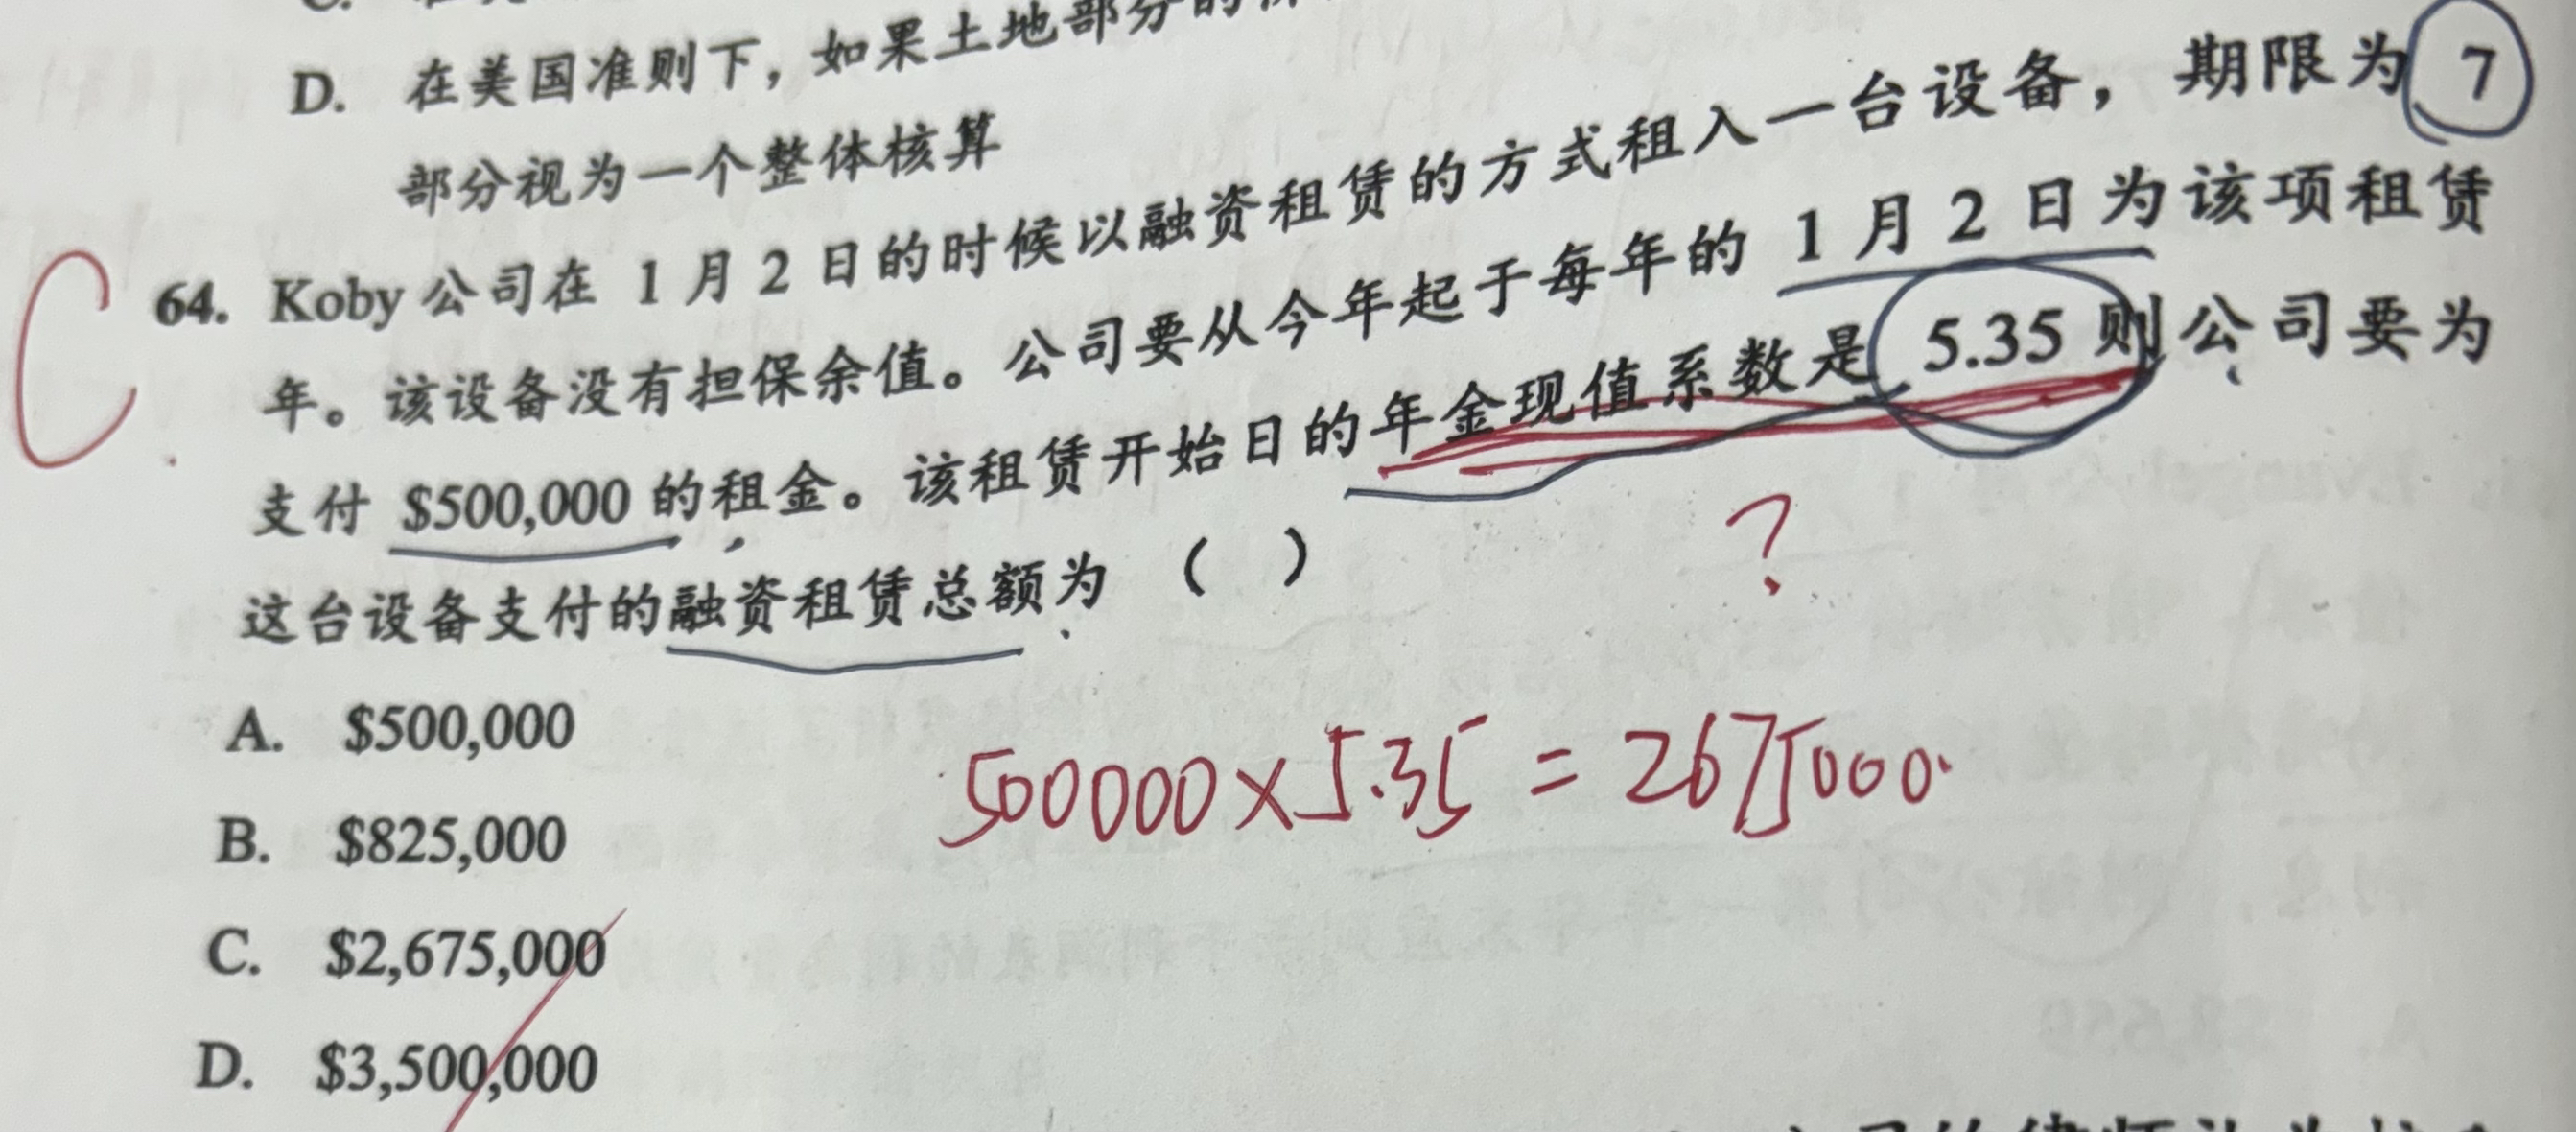 D. 在美国准则下，如果土地部分的
部分视为一个整体核算
C
64. Koby 公司在 1 月 2 日的时候以融资租赁的方式租入一台设备，期限为 7
年。该设备没有担保余值。公司要从今年起于每年的 1 月 2 日为该项租赁
支付 $500,000 的租金。该租赁开始日的年金现值系数是 5.35 则公司要为
这台设备支付的融资租赁总额为 （ ）
?
A. $500,000
500000×5.35=2675000
B. $825,000
C. $2,675,000
D. $3,500,000